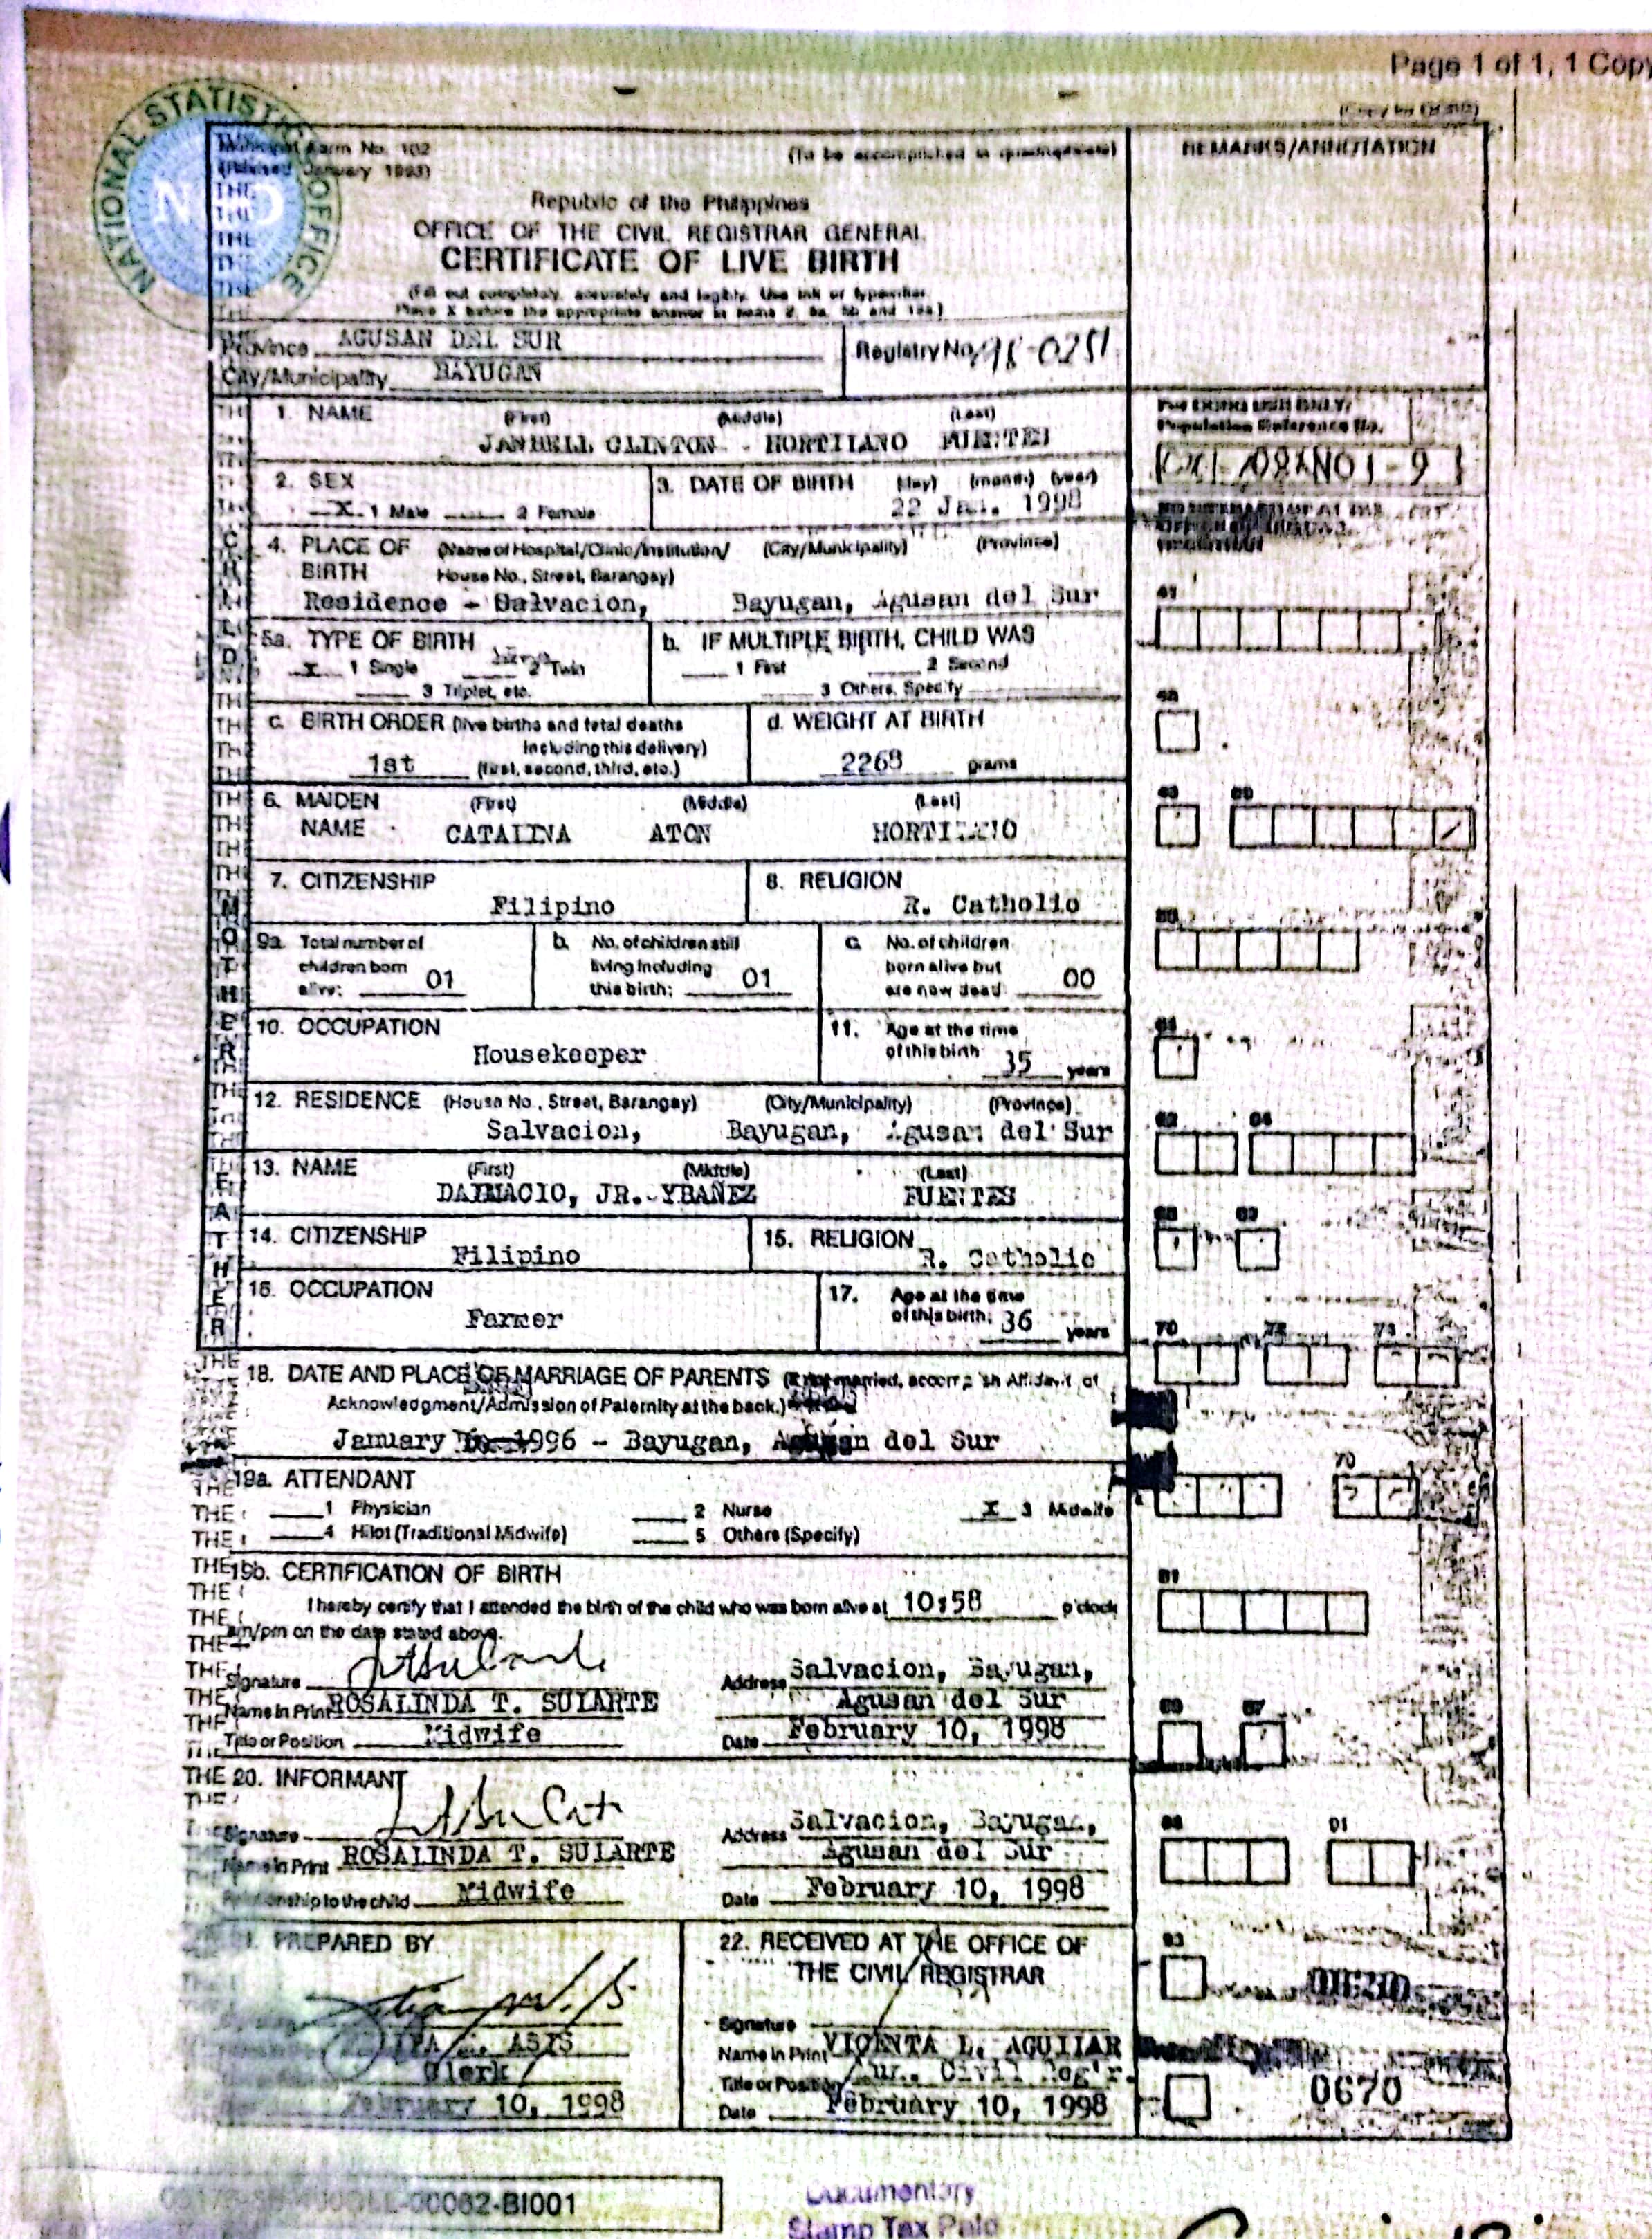 Page 1 of 1, 1 Copy
NATIONAL STATISTICS OFFICE
Municipal Form No. 102
(To be accomplished in quadruplicate)
REMARKS/ANNOTATION
(Revised January 1993)
Republic of the Philippines
OFFICE OF THE CIVIL REGISTRAR GENERAL
CERTIFICATE OF LIVE BIRTH
(Fill out completely, accurately and legibly. Use ink or typewriter.
Place X before the appropriate answer in items 2, 5a, 5b and 19a.)
Province AGUSAN DEL SUR
Registry No. 98-0251
City/Municipality BAYUGAN
1. NAME (First) (Middle) (Last)
CLINTON - HORTILANO FUENTES
2. SEX
X 1 Male 2 Female
3. DATE OF BIRTH (day) (month) (year)
22 Jan. 1998
4. PLACE OF BIRTH (Name of Hospital/Clinic/Institution/ (City/Municipality) (Province)
House No., Street, Barangay)
Residence - Salvacion, Bayugan, Agusan del Sur
41
5a. TYPE OF BIRTH
X 1 Single 2 Twin
3 Triplet, etc.
b. IF MULTIPLE BIRTH, CHILD WAS
1 First 2 Second
3 Others, Specify
c. BIRTH ORDER (live births and fetal deaths
including this delivery)
1st (first, second, third, etc.)
d. WEIGHT AT BIRTH
2268 grams
6. MAIDEN NAME (First) (Middle) (Last)
CATALINA ATON HORTILANO
7. CITIZENSHIP
Filipino
8. RELIGION
R. Catholic
9a. Total number of
children born
alive: 01
b. No. of children still
living including
this birth: 01
c. No. of children
born alive but
are now dead: 00
10. OCCUPATION
Housekeeper
11. Age at the time
of this birth 35 years
12. RESIDENCE (House No., Street, Barangay) (City/Municipality) (Province)
Salvacion, Bayugan, Agusan del Sur
13. NAME (First) (Middle) (Last)
JR. YBAÑEZ FUENTES
14. CITIZENSHIP
Filipino
15. RELIGION
R. Catholic
16. OCCUPATION
Farmer
17. Age at the time
of this birth: 36 years
70
18. DATE AND PLACE OF MARRIAGE OF PARENTS (If not married, accomplish Affidavit of
Acknowledgment/Admission of Paternity at the back.)
January 1996 - Bayugan, Agusan del Sur
19a. ATTENDANT
1 Physician 2 Nurse X 3 Midwife
4 Hilot (Traditional Midwife) 5 Others (Specify)
19b. CERTIFICATION OF BIRTH
I hereby certify that I attended the birth of the child who was born alive at 10:58 o'clock
am/pm on the date stated above.
81
Signature
Address Salvacion, Bayugan,
Agusan del Sur
Name in Print ROSALINDA T. SULARTE
Title or Position Midwife
Date February 10, 1998
87
20. INFORMANT
Signature
Address Salvacion, Bayugan,
Agusan del Sur
Name in Print ROSALINDA T. SULARTE
Relationship to the child Midwife
Date February 10, 1998
91
21. PREPARED BY
ASIS
Clerk
February 10, 1998
22. RECEIVED AT THE OFFICE OF
THE CIVIL REGISTRAR
Signature
Name in Print VICENTA L. AGUILAR
Title or Position Mun. Civil Reg'r.
Date February 10, 1998
93
0670
Documentary
Stamp Tax Paid